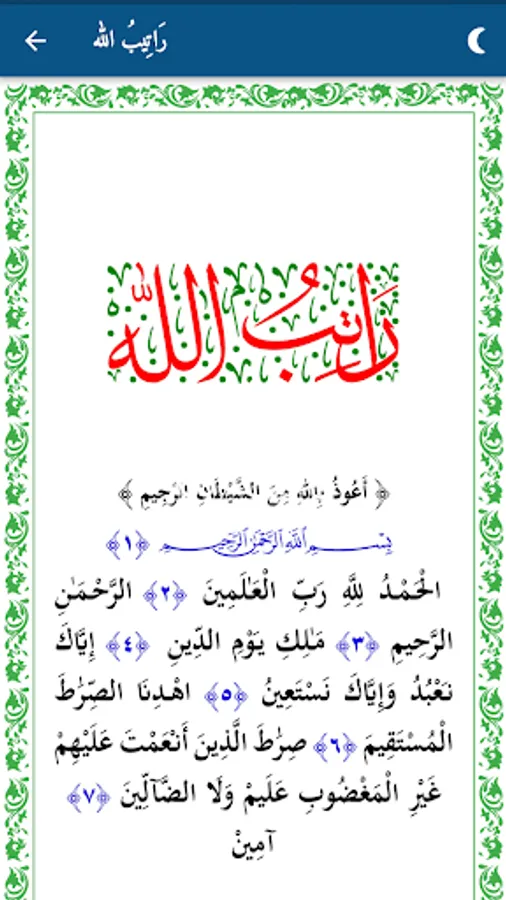 رَاتِيبُ الله
رَاتِبُ اللّٰه
﴿ أَعُوذُ بِاللهِ مِنَ الشَّيْطَانِ الرَّجِيمِ ﴾
بِسْمِ اللَّهِ الرَّحْمَٰنِ الرَّحِيمِ ﴿١﴾
الْحَمْدُ لِلَّهِ رَبِّ الْعَٰلَمِينَ ﴿٢﴾ الرَّحْمَٰنِ
الرَّحِيمِ ﴿٣﴾ مَٰلِكِ يَوْمِ الدِّينِ ﴿٤﴾ إِيَّاكَ
نَعْبُدُ وَإِيَّاكَ نَسْتَعِينُ ﴿٥﴾ اهْدِنَا الصِّرَٰطَ
الْمُسْتَقِيمَ ﴿٦﴾ صِرَٰطَ الَّذِينَ أَنْعَمْتَ عَلَيْهِمْ
غَيْرِ الْمَغْضُوبِ عَلَيمْ وَلَا الضَّآلِّينَ ﴿٧﴾
آمِينْ